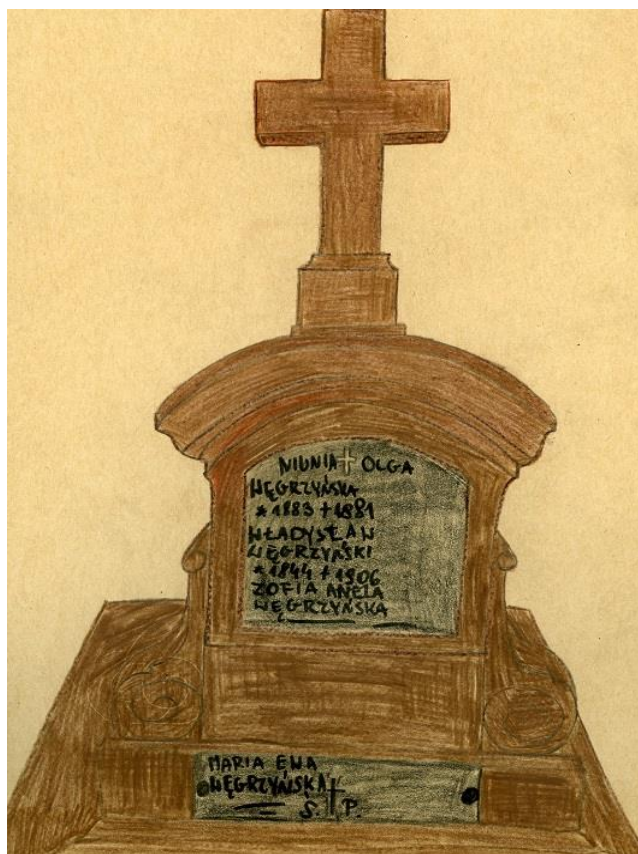 NIUNIA † OLGA
WĘGRZYŃSKA
* 1883 + 1881
WŁADYSŁAW
WĘGRZYŃSKI
* 1844 + 1906
ZOFIA ANELA
WĘGRZYŃSKA
MARIA EWA
WĘGRZYŃSKA
Ś. † P.